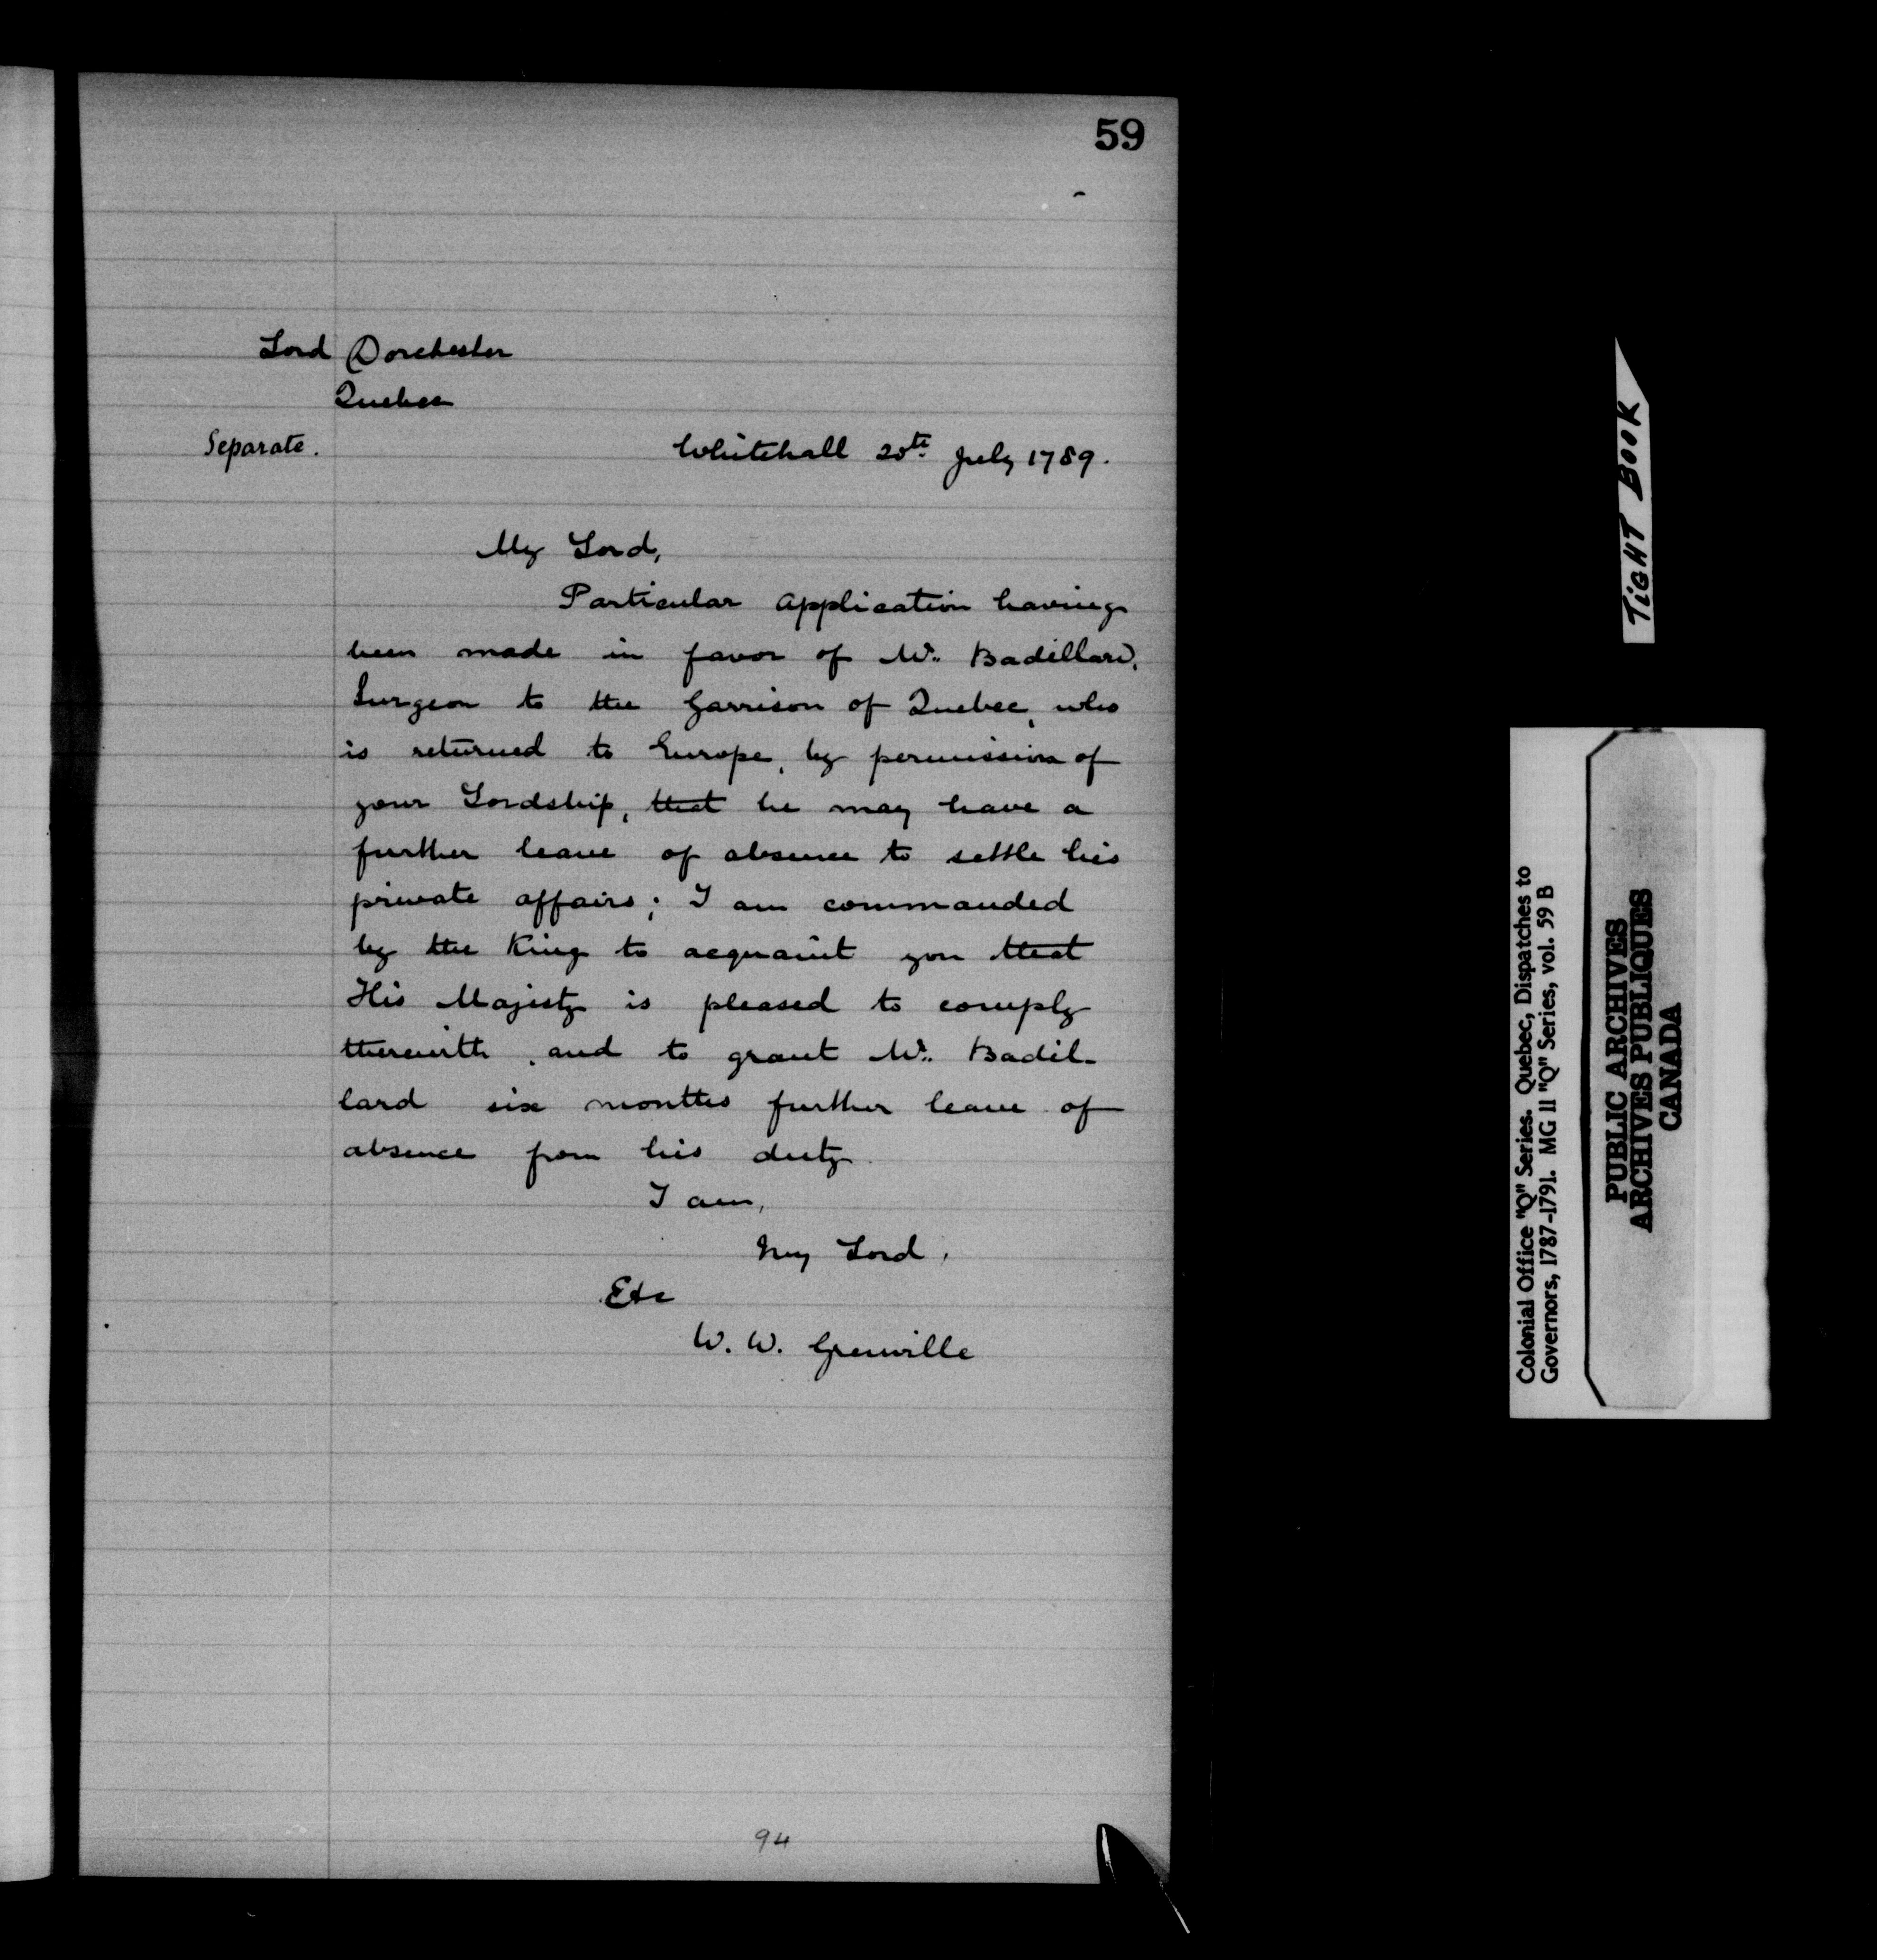 59
Lord Dorchester
Quebec
Separate.
Whitehall 20th July 1789.
My Lord,
Particular Application having
been made in favor of Mr. Badillard,
Surgeon to the Garrison of Quebec, who
is returned to Europe, by permission of
your Lordship, that he may have a
further leave of absence to settle his
private affairs; I am commanded
by the King to acquaint you that
His Majesty is pleased to comply
therewith, and to grant Mr. Badil-
lard six months further leave of
absence from his duty
I am,
My Lord,
Etc
W. W. Grenville
94
TIGHT BOOK
Colonial Office "Q" Series. Quebec, Dispatches to
Governors, 1787-1791. MG 11 "Q" Series, vol. 59 B
PUBLIC ARCHIVES
ARCHIVES PUBLIQUES
CANADA